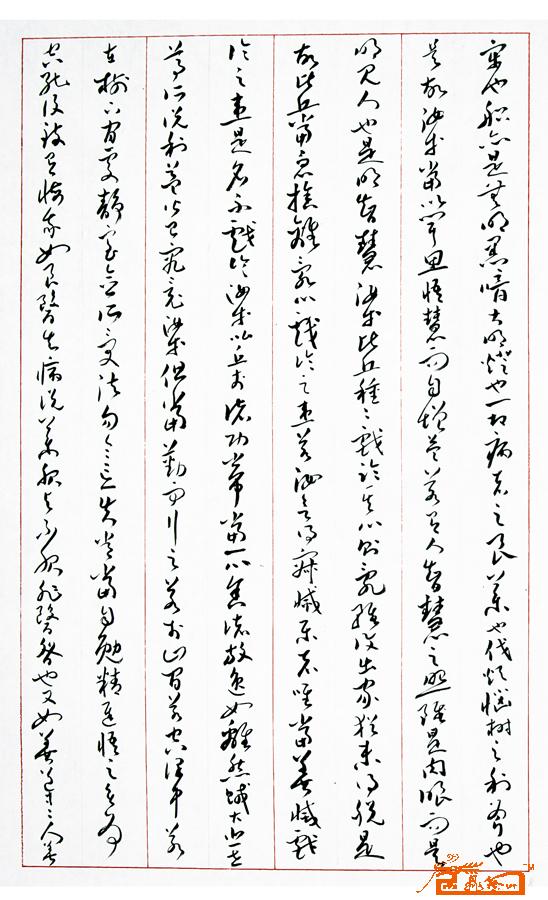 牢也船亦是無明黑暗大明燈也一切病者之良藥也伐煩惱樹之利斧也
是故汝等當以聞思悟慧而自增益若有人智慧之照雖是肉眼而是
明見人也是明智慧汝等比丘種種戲論其心則亂雖復出家猶未得脫是
故比丘當急捨離亂心戲論之患若汝欲得寂滅樂者唯當善滅戲
論之患是名不戲論汝等比丘於諸功常當一心舍諸放逸如離怨賊大悲世
尊所說利益皆已究竟汝等但當勤而行之若於山間若空澤中若
在樹下閒處靜室念所受法勿令忘失常當自勉精進悟之無為
空死後致有悔我如良醫知病說藥服與不服非醫咎也又如善導導人善